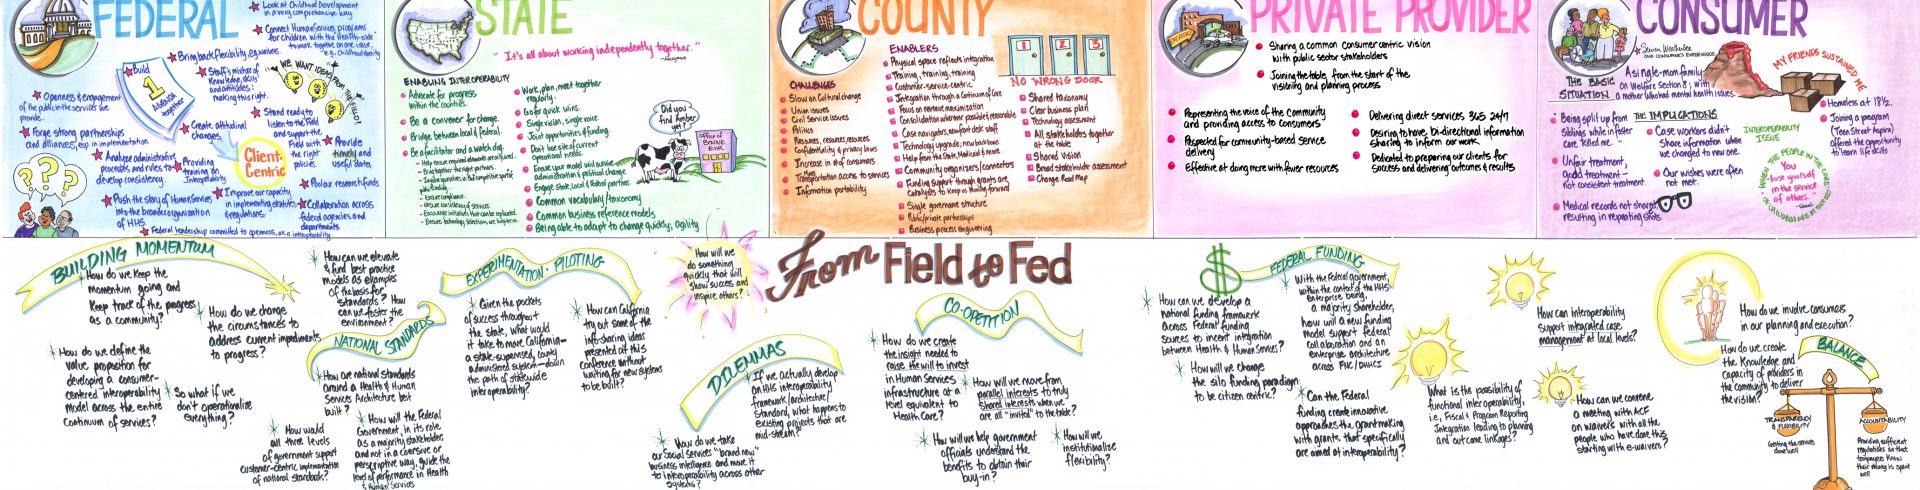 FEDERAL
Look at Childhood Development
in a very comprehensive way.
Connect Human Services programs
for children with the Health-side
to work together on one issue,
e.g. childhood obesity
Bring back flexibility e.g. waivers.
Build
1
AGENDA
together
Staff's mixture of
knowledge, skills
and attitudes:
making this right.
"WE WANT IDEAS FROM THE FIELD!"
Openness & engagement
of the public in the services we
provide.
Create attitudinal
changes.
Stand ready to
listen to the Field
and support the
Field with the
right
policies.
Forge strong partnerships
and alliances, esp. in implementation.
Client-
Centric
Provide
timely and
useful data.
Analyze administrative
processes and rules to
develop consistency.
Providing
training on
Interoperability.
Pool our research funds
Improve our capacity
in implementing statutes
& regulations.
Push the story of Human Services
into the broader organization
of HHS.
Collaboration across
federal agencies and
departments
Federal leadership committed to openness, aka interoperability
STATE
"It's all about working independently together."
- Anonymous
ENABLING INTEROPERABILITY
Advocate for progress
within the counties.
Be a convener for change.
Bridge between local & federal.
Be a facilitator and a watch dog.
- Bring together the right partners.
- Ensure compliance.
- Ensure consistency of services.
Work, plan, meet together
regularly.
Go for quick wins.
Single vision, single voice.
Joint opportunities & funding.
Don't lose site of current
operational needs
Ensure your model will survive
administration & political change
Engage state, local & federal partners.
Common vocabulary/taxonomy
Common business reference models
Being able to adapt to change quickly, agility
Did you
find Amber
yet?
Office of
BONNIE
BURR
COUNTY
CHALLENGES
Slow on Cultural change
Union issues
Civil service issues
Politics
Resources, resources, resources
Confidentiality & privacy laws
Increase in # of consumers
Transportation access to services
Information portability
ENABLERS
Physical space reflects integration
Training, training, training
Customer-service-centric
Integration through a Continuum of Care
Focus on revenue maximization
Consolidation wherever possible & reasonable
Case navigators, new front desk staff
Technology upgrade, new backbone
Help from the State, Medicaid & more
Community organizers/connectors
Funding support through grants are
catalysts to keep us moving forward
Single governance structure
Public/private partnerships
Business process engineering
1
2
3
NO WRONG DOOR
Shared taxonomy
Clear business plan
Technology assessment
All stakeholders
together at the table
Shared Vision
Broad stakeholder assessment
Change Road Map
PRIVATE PROVIDER
EMERGENCY
Sharing a common consumer centric vision
with public sector stakeholders
Joining the table from the start of the
visioning and planning process
Representing the voice of the Community
and providing access to consumers
Respected for community-based service
delivery
Effective at doing more with fewer resources
Delivering direct services 365 24/7
Desiring to have bi-directional information
sharing to inform our work
Dedicated to preparing our clients for
success and delivering outcomes & results
CONSUMER
ONE CONSUMER'S EXPERIENCES
THE BASIC
SITUATION
A single-mom family
on Welfare Section 8; with
a mother who had mental health issues.
MY FRIENDS SUSTAINED ME
THE IMPLICATIONS
Being split up from
siblings while in foster
care "killed me."
Unfair treatment,
good treatment -
not consistent treatment.
Medical records not shared,
resulting in repeating shots.
Case workers didn't
share information when
we changed to new one.
Our wishes were often
not met.
INTEROPERABILITY
ISSUE
"You
lose yourself
in the service
of others."
- Gandhi
Homeless at 18½.
Joining a program
(Teen Street Aspira)
offered the opportunity
to learn life skills
From Field to Fed
BUILDING MOMENTUM
How do we keep the
momentum going and
keep track of the progress
as a community?
How do we change
the circumstances to
address current impediments
to progress?
How do we define the
value proposition for
developing a consumer-
centered interoperability
model across the entire
continuum of services?
So what if we
don't operationalize
everything?
How can we elevate
& find best practice
models as examples
of the basis for
standards? How
can we foster the
environment?
NATIONAL STANDARDS
How are national standards
around a Health & Human
Services Architecture best
built?
How would
all three levels
of government support
customer-centric implementation
of national standards?
How will the Federal
Government, in its role
as a majority stakeholder,
and not in a coersive or
perscriptive way, guide the
level of performance in Health
& Human Services
EXPERIMENTATION · PILOTING
Given the pockets
of success throughout
the state, what would
it take to move California -
a state-supervised, county
administered system - down
the path of statewide
interoperability?
How can California
try out some of the
info-sharing ideas
presented at this
conference without
waiting for new systems
to be built?
How will we
do something
quickly that will
show success and
inspire others?
DILEMMAS
If we actually develop
an HHS interoperability
framework/architecture/
standard, what happens to
existing projects that are
mid-stream?
How do we take
our Social Services "brand new"
business intelligence and move it
to interoperability across other
systems?
CO-OPETITION
How do we create
the insight needed to
raise the will to invest
in Human Services
infrastructure at a
level equivalent to
Health Care?
How will we move from
parallel interests to truly
shared interests when we
are all "invited" to the table?
How will we help government
officials understand the
benefits to obtain their
buy-in?
How will we
institutionalize
flexibility?
$
FEDERAL FUNDING
How can we develop a
national funding framework
across Federal funding
sources to incent integration
between Health & Human Services?
How will we change
the silo funding paradigm
to be citizen centric?
With the Federal government,
within the context of the HHS
enterprise being,
a majority shareholder,
how will a new funding
model support federal
collaboration and an
enterprise architecture
across
Can the Federal
funding create innovative
approaches the grantmaking
with grants that specifically
are aimed at interoperability?
What is the possibility of
functional interoperability,
i.e., Fiscal & Program Reporting
Integration leading to planning
and outcome linkages?
How can interoperability
support integrated case
management at local levels?
How can we convene
a meeting with ACF
on waivers with all the
people who have done this,
starting with e-waivers?
How do we involve consumers
in our planning and execution?
How do we create
the knowledge and
capacity of providers in
the community to deliver
the vision?
BALANCE
TRANSPARENCY
& FLEXIBILITY
Getting the services
done well
ACCOUNTABILITY
Providing sufficient
regulations so that
taxpayers know
their money is spent
well